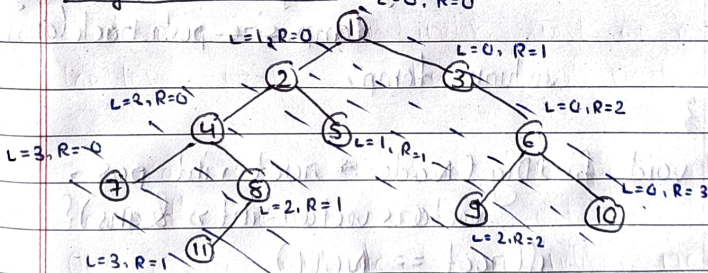 L=0, R=0
1
L=1, R=0
L=0, R=1
2
3
L=2, R=0
L=0, R=2
4
5
L=1, R=1
6
L=3, R=0
7
8
L=2, R=1
L=0, R=3
9
10
L=2, R=2
11
L=3, R=1